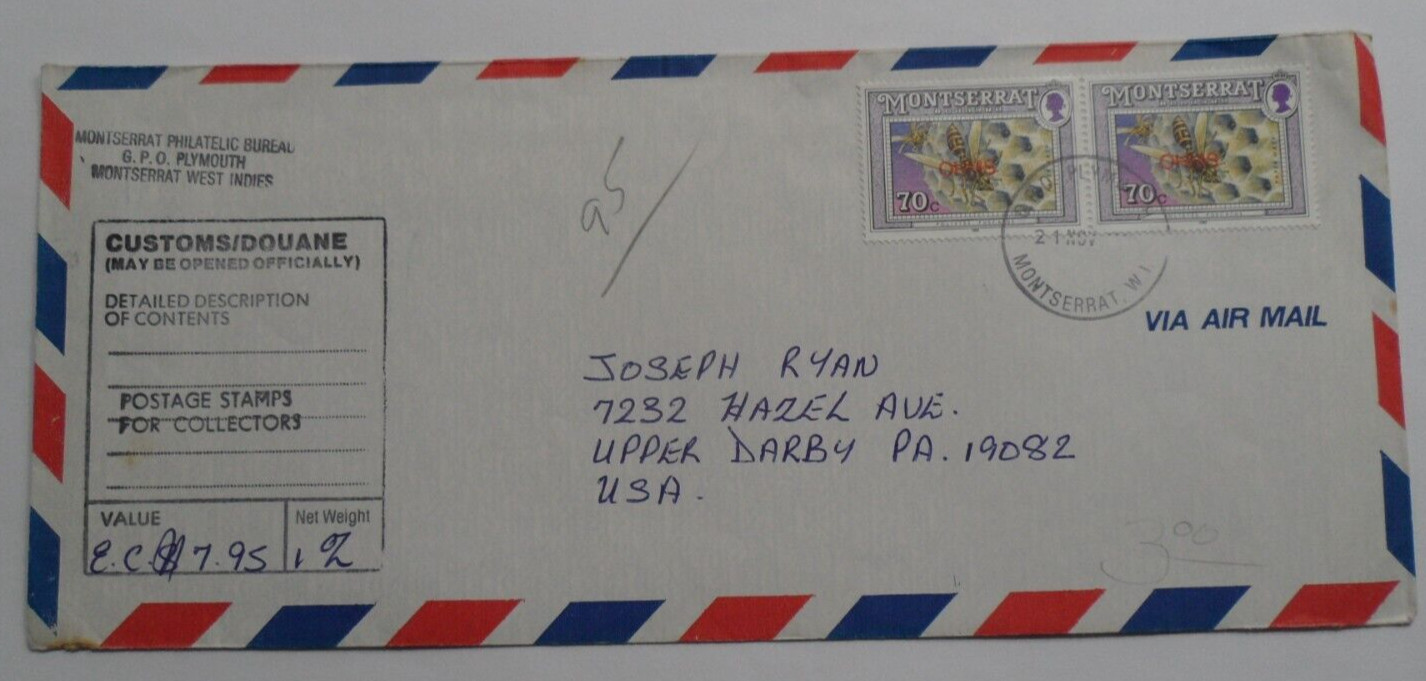 MONTSERRAT PHILATELIC BUREAU
G. P. O. PLYMOUTH
MONTSERRAT WEST INDIES
CUSTOMS/DOUANE
(MAY BE OPENED OFFICIALLY)
DETAILED DESCRIPTION
OF CONTENTS
POSTAGE STAMPS
FOR COLLECTORS
VALUE
E.C.$7.95
Net Weight
95/
MONTSERRAT
OHMS
70c
MONTSERRAT
OHMS
70c
21 NOV
MONTSERRAT. W.I.
VIA AIR MAIL
JOSEPH RYAN
7232 HAZEL AVE.
UPPER DARBY PA. 19082
USA.
3.00